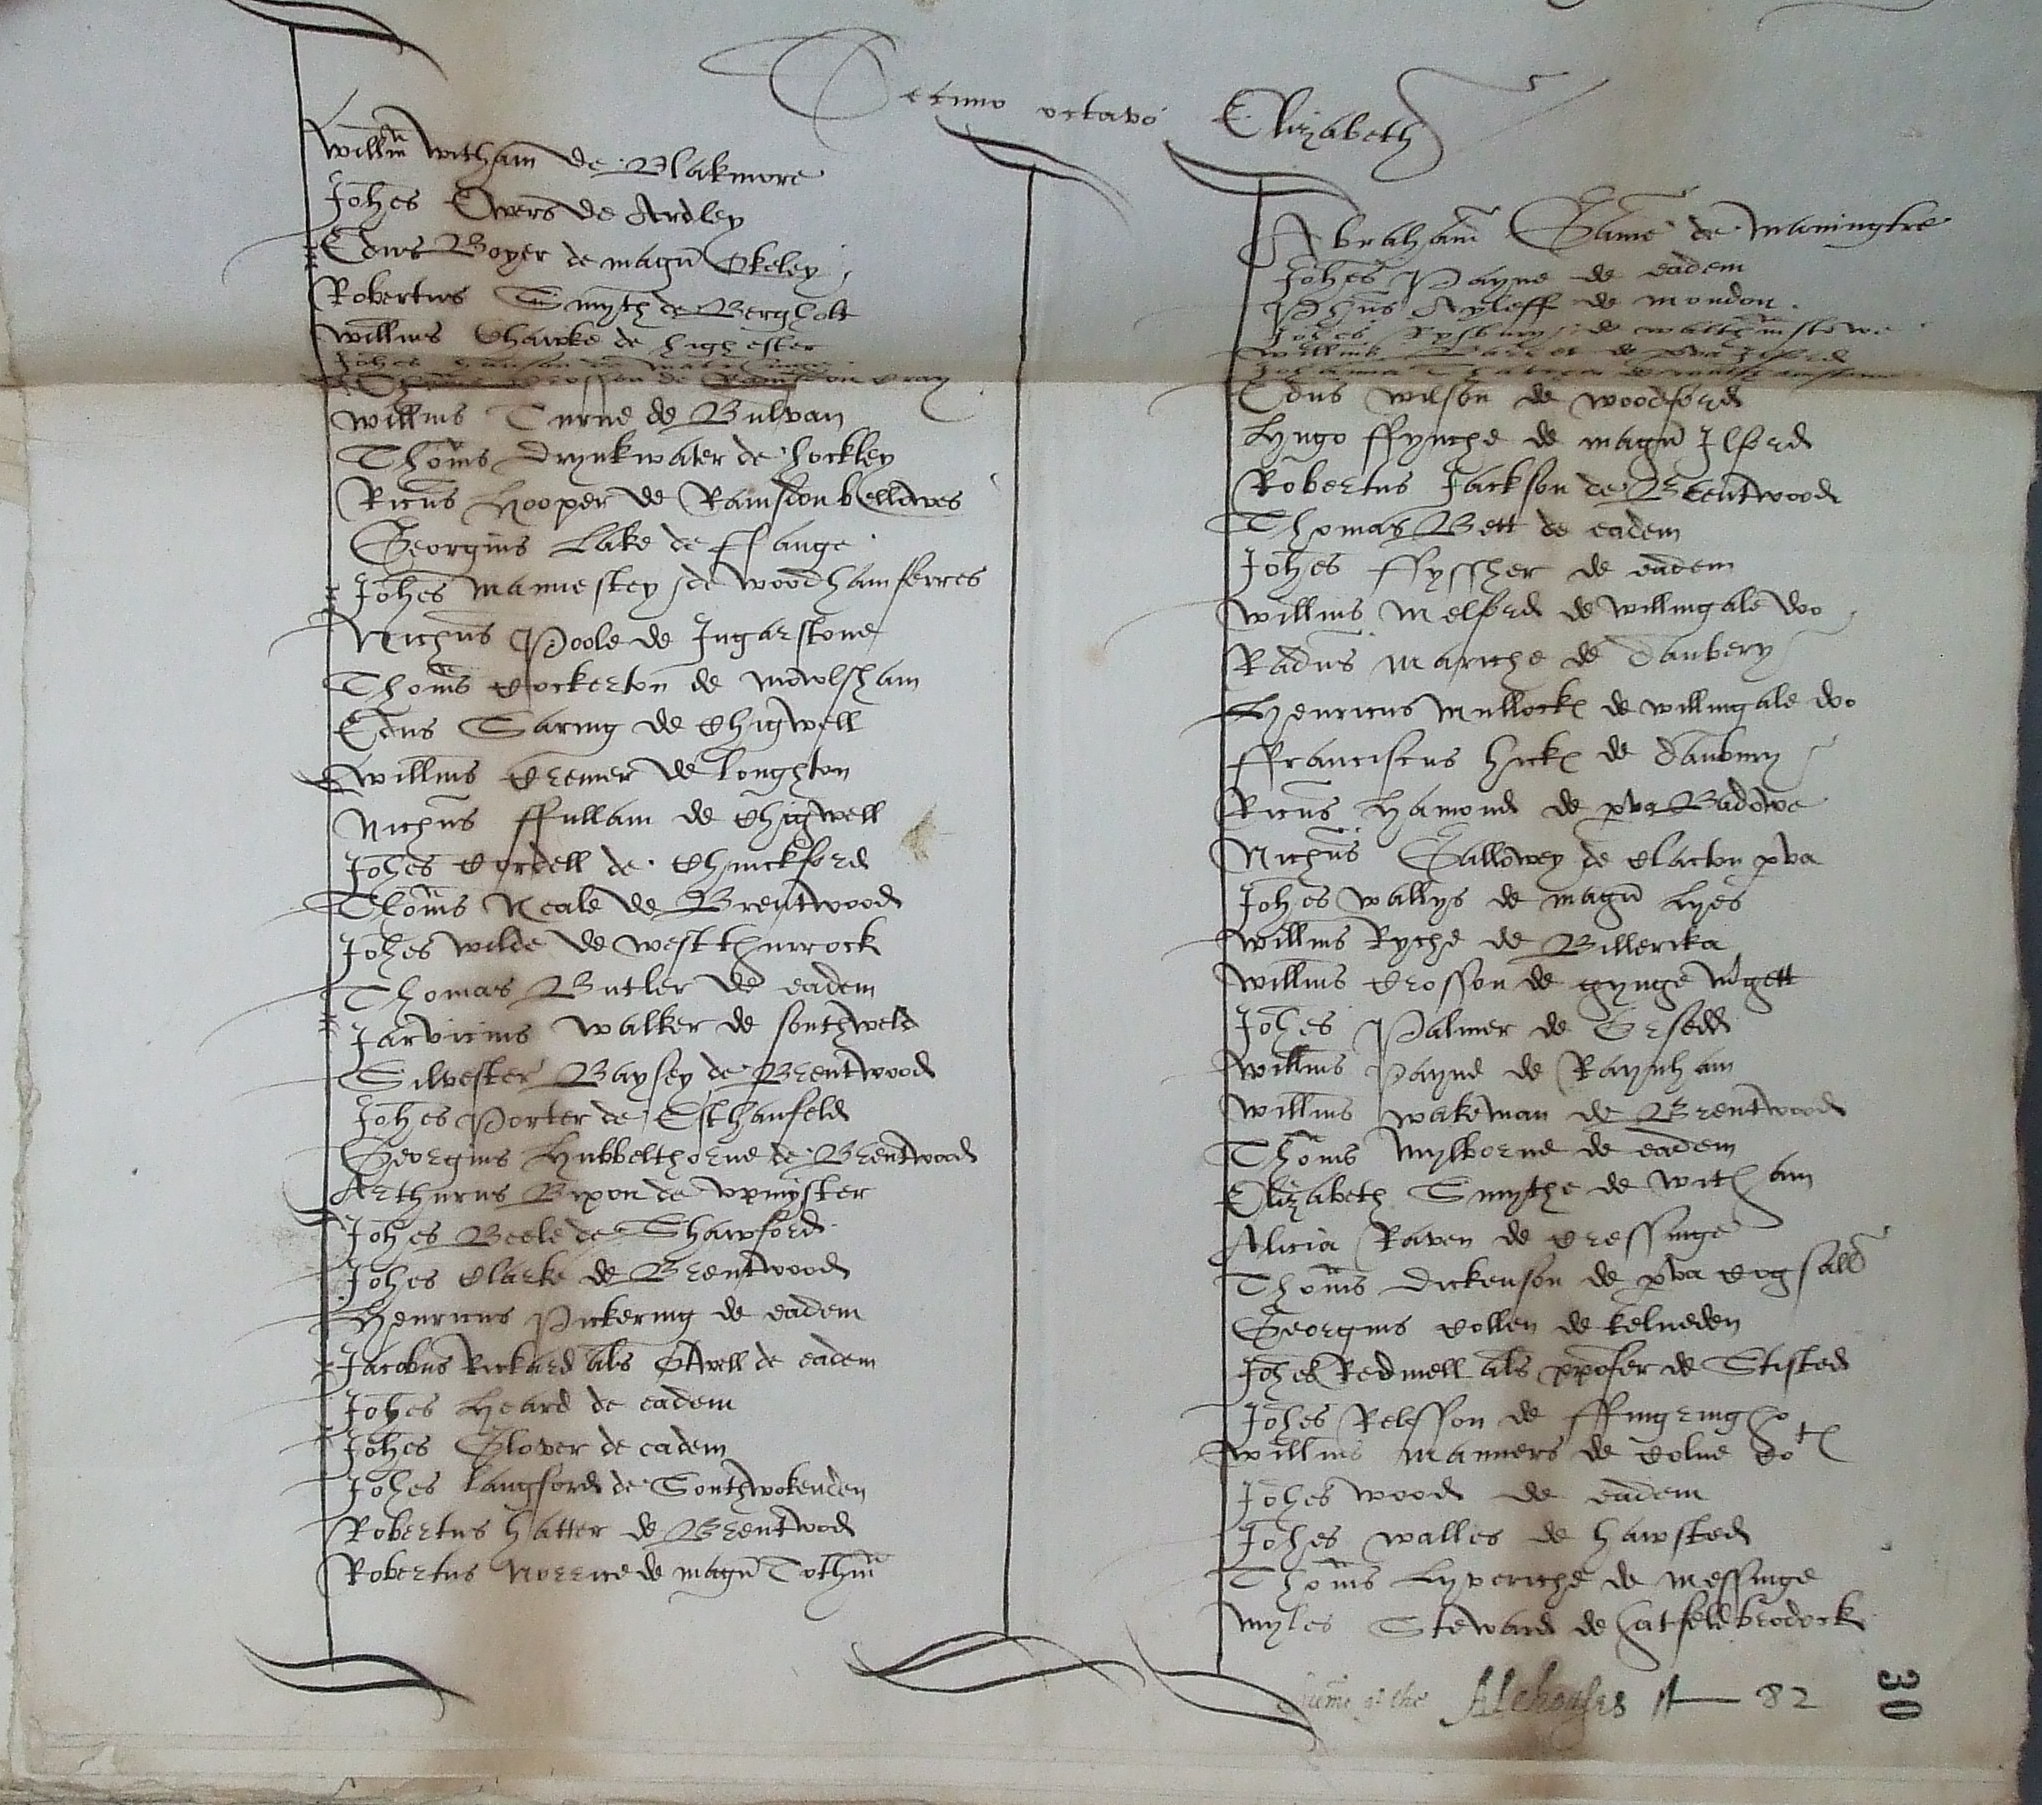 Decimo octavo Elizabeth
Willms Witham de Blakmore
Johes Ewers de Ardley
Edus Boyer de magn Okeley
Robertus Smyth de Bergholt
Willms Chawke de highester
Johes
de Ramsdon Cray
Willms Turne de Bulvan
Thoms Drynkwater de hockley
Ricus Hooper de Ramsdon bellowes
Georgius Lake de ffange
Johes Mannestey de Woodhamferres
Nichus Poole de Ingarstone
Thoms Cockerton de Mowlsham
Edus Saring de Chigwell
Willms Cremer de Loughton
Nichus ffullam de Chigwell
Johes Cordell de Chinckford
Thoms Neale de Brentwood
Johes Wilde de Westthurrock
Thomas Butler de eadem
Jarvicius Walker de Southweld
Silvester Baysey de Brentwood
Johes Porter de Esthanfeld
Georgius Hubbelthorne de Brentwood
Arthurus Bixon de Upmyster
Johes Beele de Shawford
Johes Clarke de Brentwood
Henricus Pickering de eadem
Jacobus Rickard als Otwell de eadem
Johes Heard de eadem
Johes Glover de eadem
Johes Langford de Southwokenden
Robertus hatter de Brentwod
Robertus Norrice de magn Tothm
Abraham Game de Maningtre
Johes Payne de eadem
Phus Ayleff de Mondon
Johes de Walthmstowe
Willms de pva Ilford
Johanna de
Edus Wilson de Woodford
Hugo ffynche de magn Ilford
Robertus Jackson de Brentwood
Thomas Bett de eadem
Johes ffyssher de eadem
Willms Melford de Willingale doo
Radus Marche de Danbery
Henricus Mullock de Willingale doo
ffranciscus hick de Danbury
Ricus Hamond de pva Badowe
Nichus Gallowey de Clacton pva
Johes Wallys de magn Lyes
Willms Ryche de Billerica
Willms Crosson de gynge mgett
Johes Palmer de Orsedd
Willms Payne de Raynham
Willms Wakeman de Brentwood
Thoms Mylborne de eadem
Elizabeth Smythe de Witham
Alicia Raven de Cressinge
Thoms Dickenson de pva Cogsall
Georgius Collen de Kelneden
Johes Redmell als pposer de Stisted
Johes Relsson de ffingringho
Willms Manners de Colne
Johes Wood de eadem
Johes Walles de hawsted
Thoms Lyveriche de Messinge
Myles Steward de hatfeldbrodock
Sume of the Alehouses 82
30